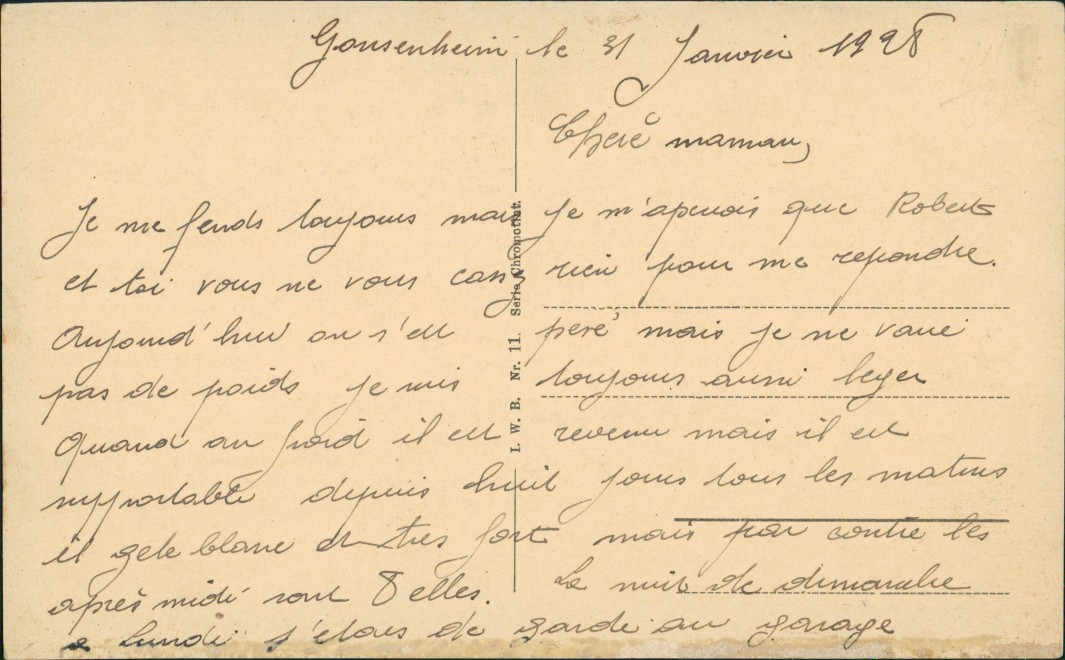 Gonsenheim le 31 Janvier 1928
Cheré maman,
Je me fends toujours mais je m'aperçois que Robert
et toi vous ne vous cassez rien pour me repondre.
Aujourd'hui on s'est pesé mais je ne varie
pas de poids je suis toujours aussi leger
Quand au froid il est revenu mais il est
supportable depuis huit jours tous les matins
il gele blanc et tres fort mais par contre les
après midi sont belles. La nuit de dimanche
a lundi j'etais de garde au garage
I. W. B. Nr. 11. Serie Chromotint.